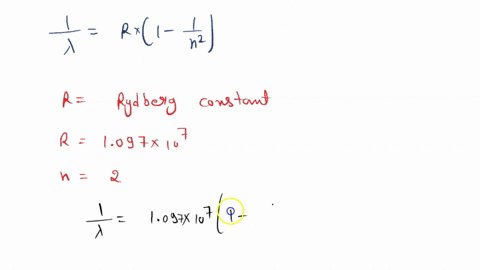 1/λ = R × (1 - 1/n²)
R = Rydberg constant
R = 1.097 × 10⁷
n = 2
1/λ = 1.097 × 10⁷ (1 -